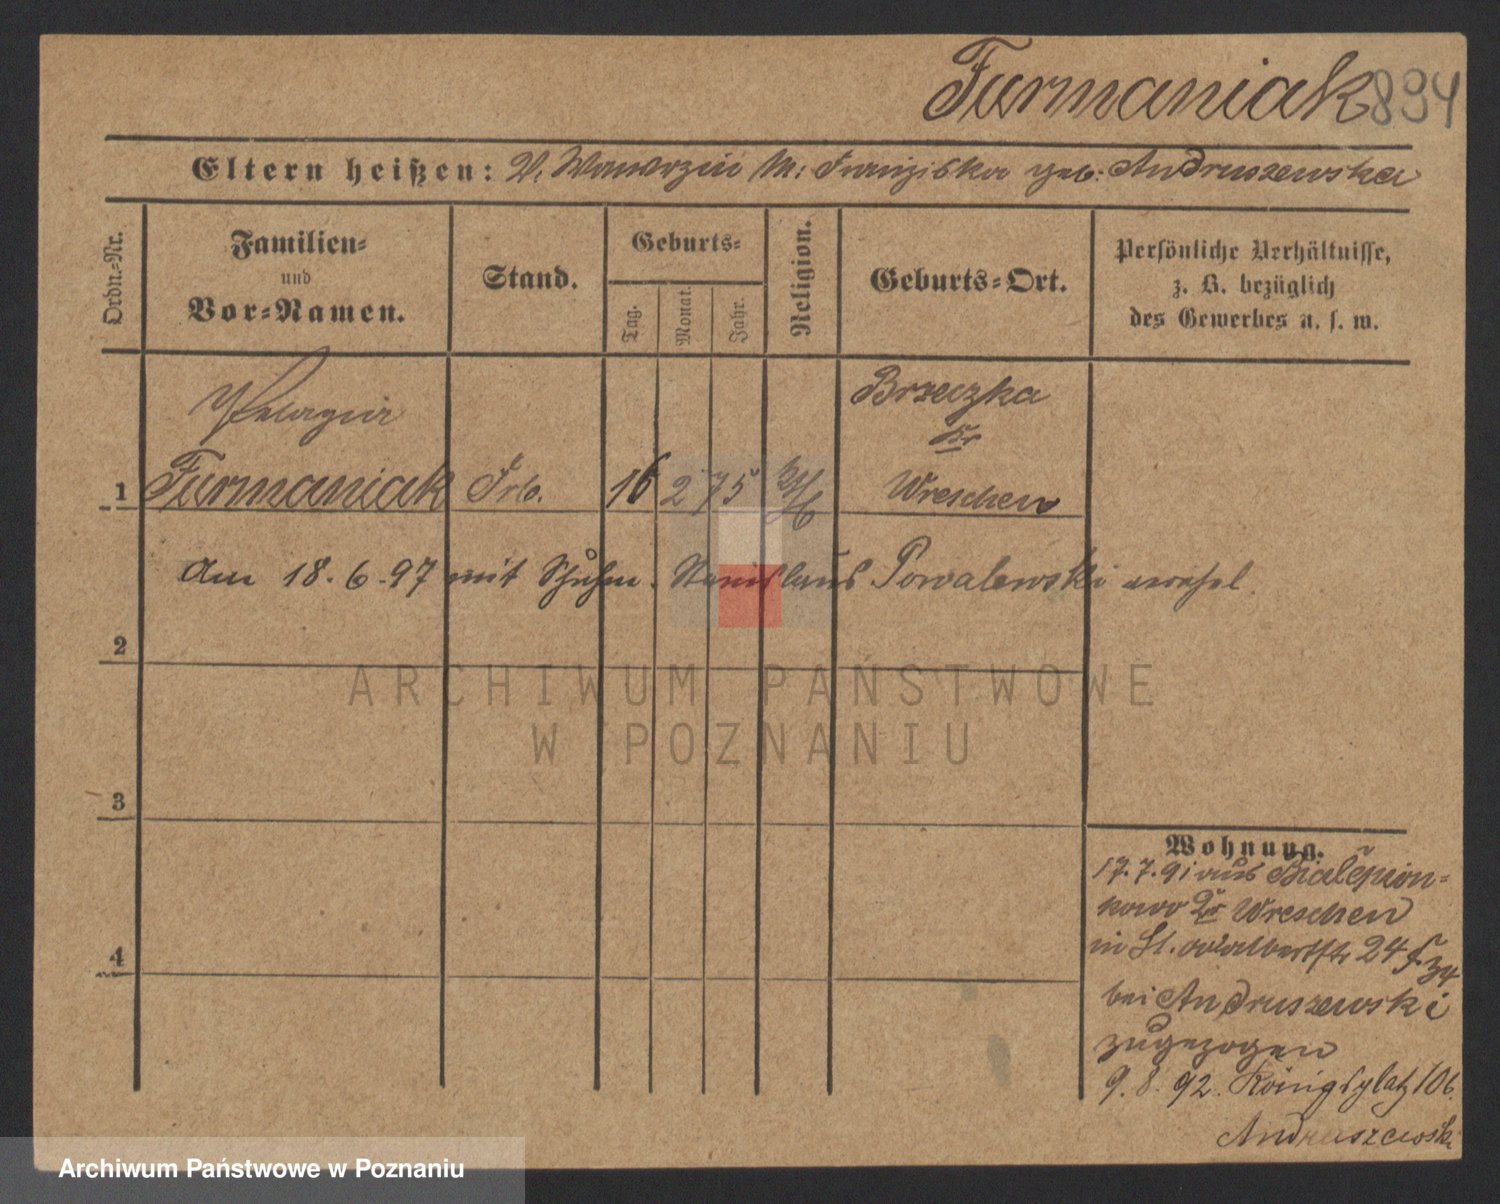 Furmaniak 894
Eltern heißen: V. Wawrzin M: Franziska geb: Andruszewska
Ordn.-Nr.
Familien-
und
Vor-Namen.
Stand.
Geburts-
Tag.
Monat.
Jahr.
Religion.
Geburts-Ort.
Persönliche Verhältnisse,
z. B. bezüglich
des Gewerbes u. s. w.
Pelagia
Brzeczka
Kr
1 Furmaniak Frb. 16 2 75 Wreschen
Am 18. 6. 97 mit Schuhm. Stanislaus Powalewski verehel.
2
ARCHIWUM PAŃSTWOWE
W POZNANIU
3
Wohnung.
17. 7. 91 aus
Wreschen
4
in St. Adalbertstr 24
bei Andruszewski
zugezogen
9. 8. 92. Königsplatz 10b.
Andruszewski
Archiwum Państwowe w Poznaniu